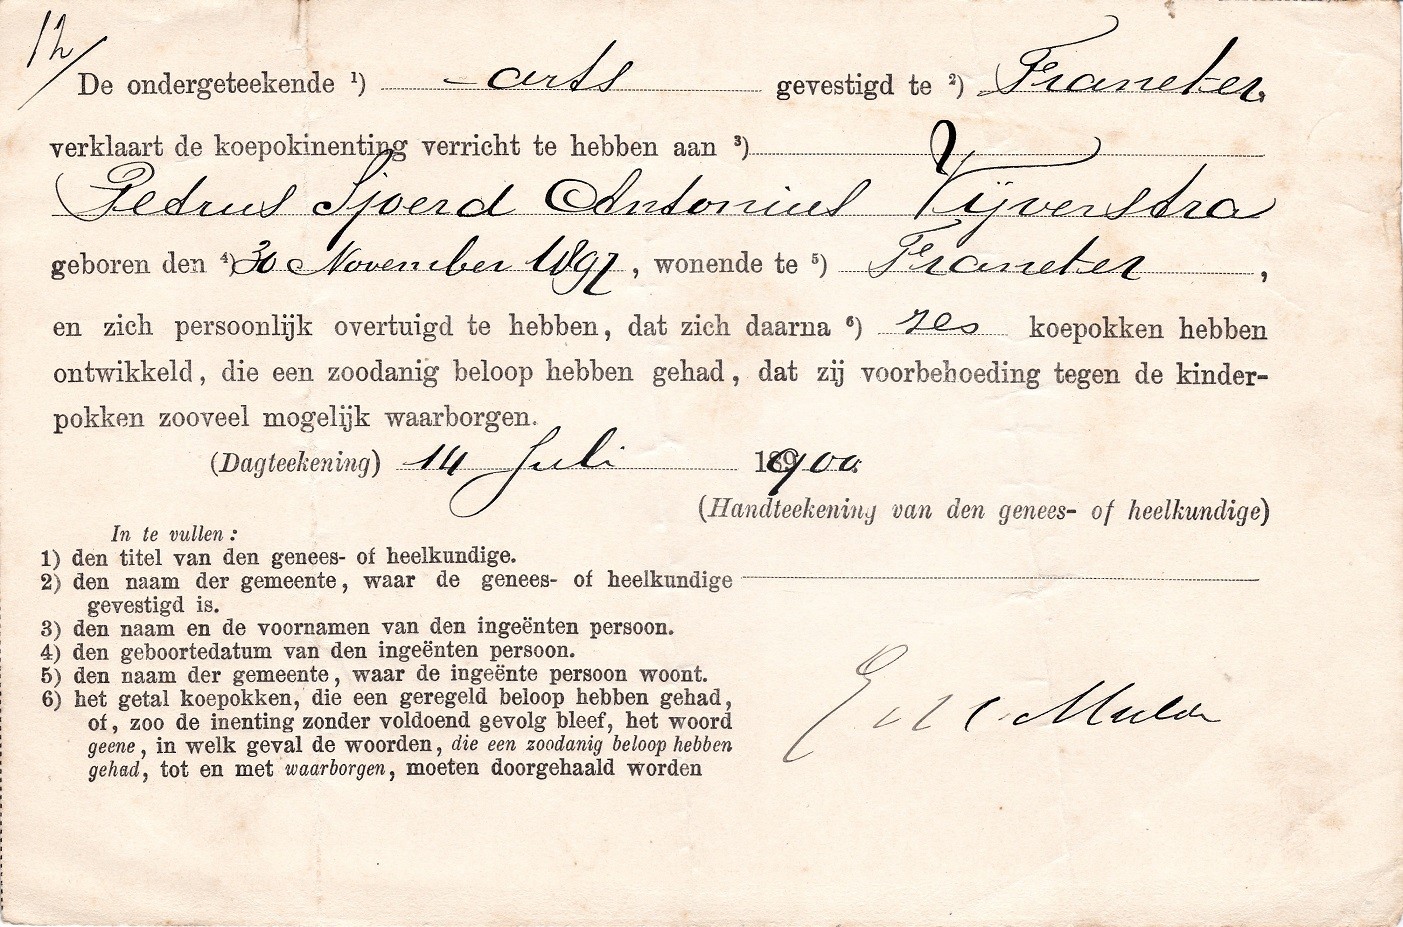 12/
De ondergeteekende ¹) arts gevestigd te ²) Franeker,
verklaart de koepokinenting verricht te hebben aan ³)
Petrus Sjoerd Antonius Vijverstra
geboren den ⁴) 30 November 1897, wonende te ⁵) Franeker,
en zich persoonlijk overtuigd te hebben, dat zich daarna ⁶) zes koepokken hebben
ontwikkeld, die een zoodanig beloop hebben gehad, dat zij voorbehoeding tegen de kinder-
pokken zooveel mogelijk waarborgen.
(Dagteekening) 14 Juli 1900.
(Handteekening van den genees- of heelkundige)
In te vullen:
1) den titel van den genees- of heelkundige.
2) den naam der gemeente, waar de genees- of heelkundige
gevestigd is.
3) den naam en de voornamen van den ingeënten persoon.
4) den geboortedatum van den ingeënten persoon.
5) den naam der gemeente, waar de ingeënte persoon woont.
6) het getal koepokken, die een geregeld beloop hebben gehad,
of, zoo de inenting zonder voldoend gevolg bleef, het woord
geene, in welk geval de woorden, die een zoodanig beloop hebben
gehad, tot en met waarborgen, moeten doorgehaald worden
Mulder